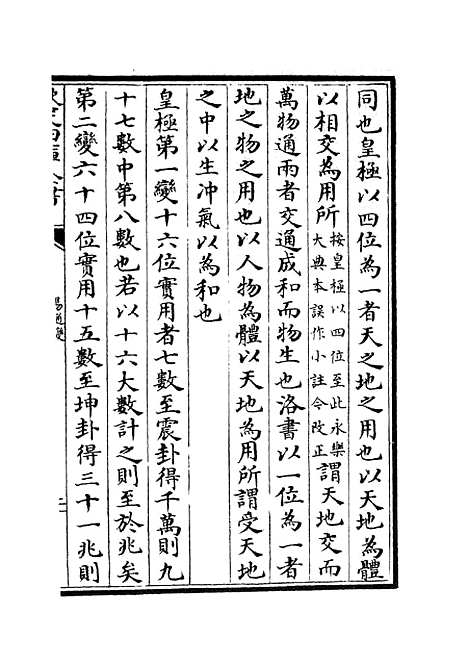 同也皇極以四位為一者天之地之用也以天地為體
以相交為用所按皇極以四位至此永樂大典本誤作小註今改正謂天地交而
萬物通兩者交通成和而物生也洛書以一位為一者
地之物之用也以人物為體以天地為用所謂受天地
之中以生冲氣以為和也
皇極第一變十六位實用者七數至震卦得千萬則九
十七數中第八數也若以十六大數計之則至於兆矣
第二變六十四位實用十五數至坤卦得三十一兆則
易通變